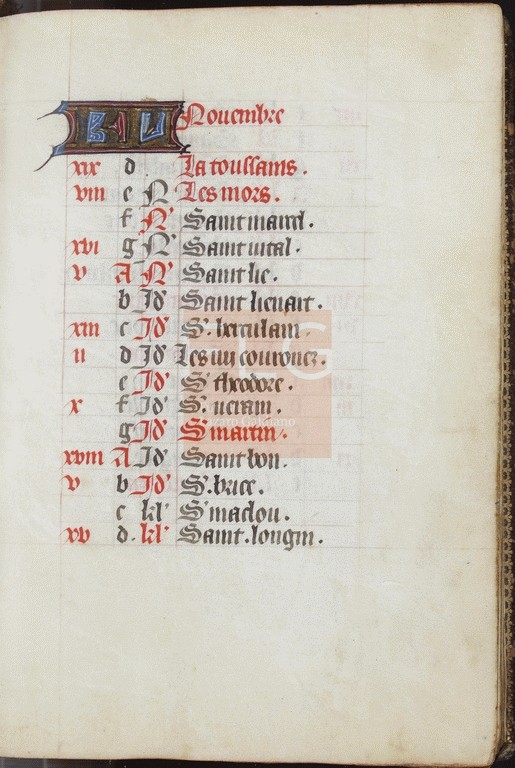 KL Nouembre
xix d La toussains.
viii e N Les mors.
f N Saint marcel.
xvi g N Saint vital.
v A N Saint lie.
b Id Saint lienart.
xiii c Id S. herculain.
ii d Id Les iiii couronez.
e Id S theodore.
x f Id S. uerain.
g Id S martin.
xviii A Id Saint bon.
v b Id S. brice.
c kl S maclou.
xv d. kl Saint. longin.